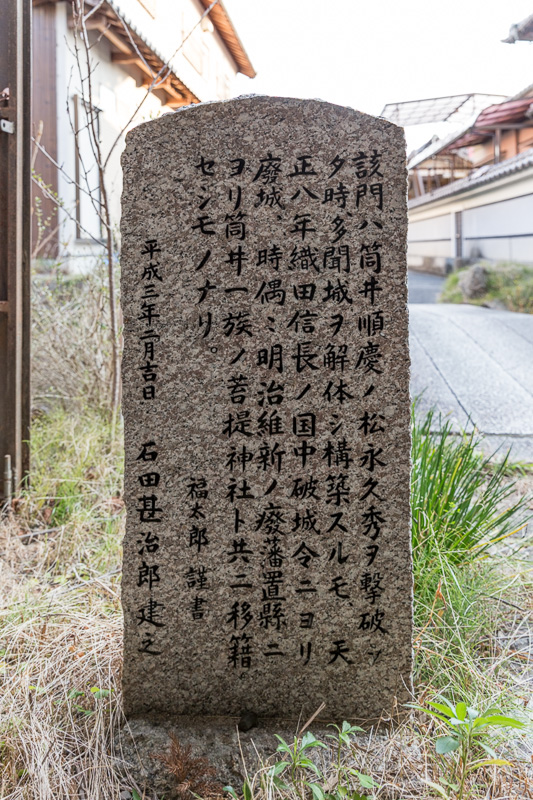 該門ハ筒井順慶ノ松永久秀ヲ撃破シ
夕時多聞城ヲ解体シ構築スルモ、天
正八年織田信長ノ国中破城令ニヨリ
廢城、時偶ミ明治維新ノ廢藩置縣ニ
ヨリ筒井一族ノ菩提神社ト共ニ移籍。
セシモノナリ。
福太郎 謹書
平成三年二月吉日 石田甚治郎建之